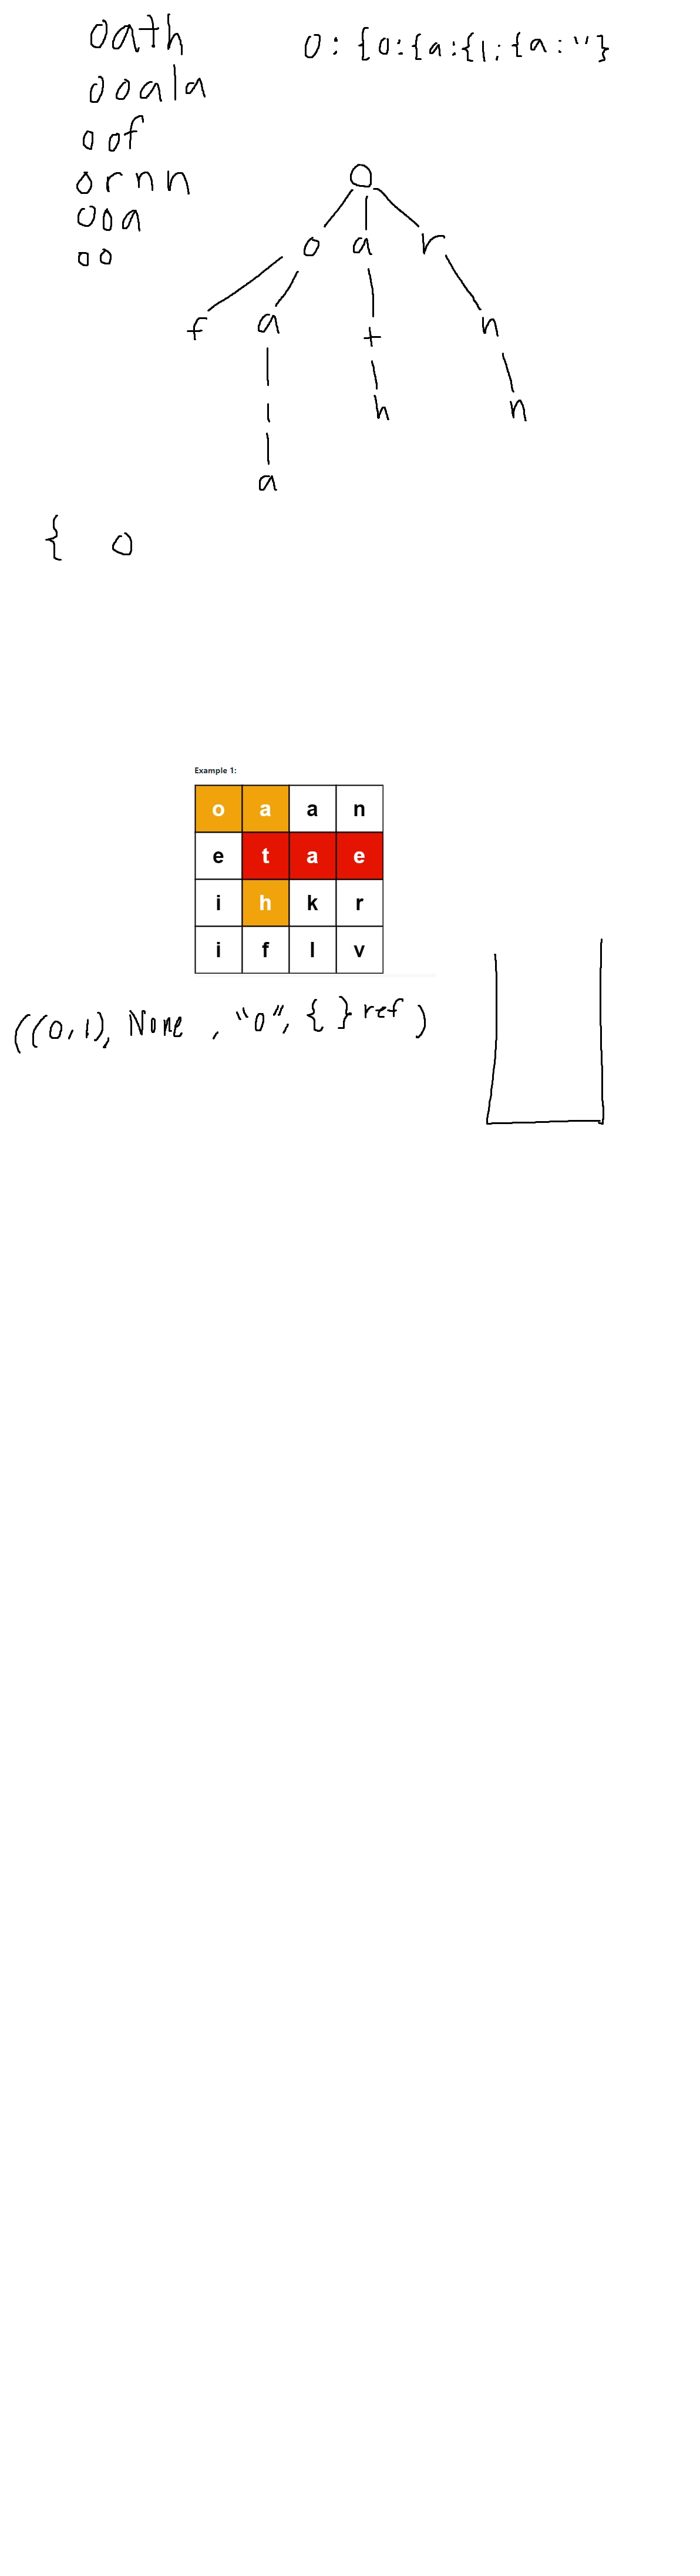 oath
o: {o:{a:{l:{a:"}
ooala
oof
ornn
ooa
oo
o
o a r
f a t n
l h n
a
{ o
Example 1:
o a a n
e t a e
i h k r
i f l v
((0,1), None, "o", { } ref )